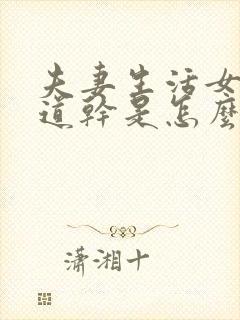 夫妻生活女
道幹是怎麼
潇湘十